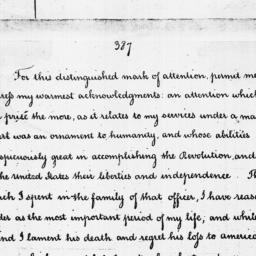 387
For this distinguished mark of attention, permit me
ress my warmest acknowledgments: an attention which
prize the more, as it relates to my services under a ma
ert was an ornament to humanity, and whose abilities
spicuously great in accomplishing the Revolution, and
he United States their liberties and independence. Th
ch I spent in the family of that officer, I have reaso
der as the most important period of my life; and while
nd I lament his death and regret his loss to america